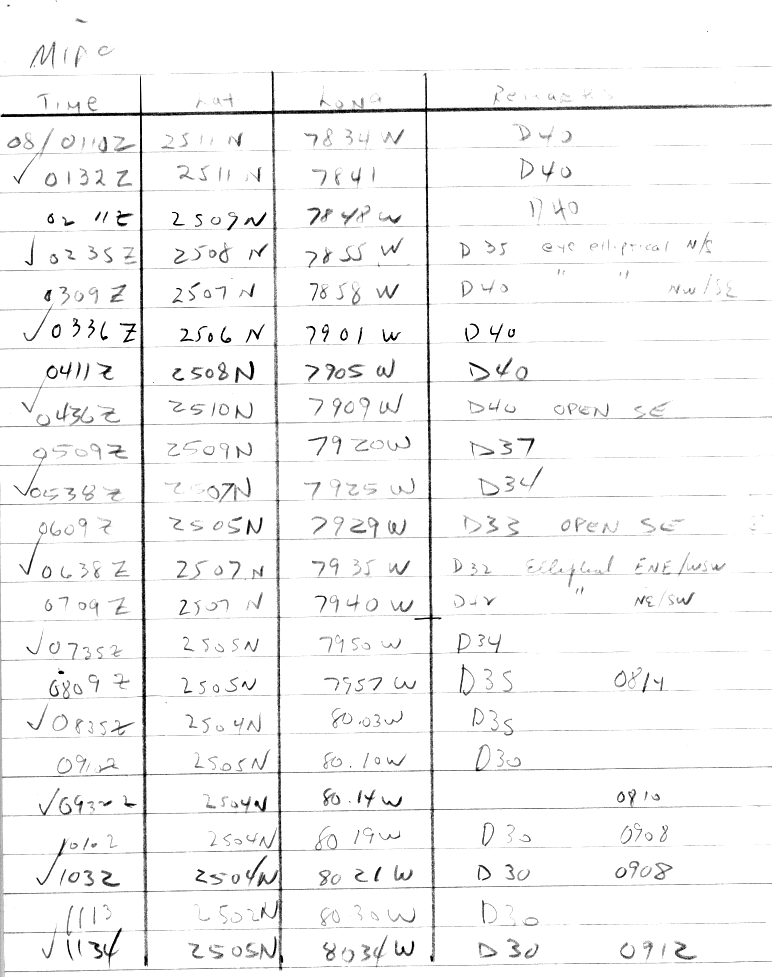 MIPC
TIME Lat LONG Remarks
08/0110Z 2511 N 7834 W D40
✓ 0132 Z 2511 N 7841 D40
0211Z 2509N 7848W D40
✓ 0235Z 2508 N 7855 W D 35 eye elliptical N/S
0309 Z 2507 N 7858 W D40 " " NW/SE
✓ 0336 Z 2506 N 7901 W D40
0411Z 2508N 7905 W D40
✓ 0436Z 2510N 7909W D40 OPEN SE
0509Z 2509N 7920W D37
✓ 0538Z 2507N 7925 W D34
0609Z 2505N 7929W D33 OPEN SE
✓ 0638Z 2507N 7935 W D32 Elliptical ENE/WSW
0709Z 2507 N 7940 W " NE/SW
✓ 0735Z 2505N 7950 W D34
0809 Z 2505N 7957 W D35 0814
✓ 0835Z 2504N 80.03W D35
0910Z 2505N 80.10W D30
✓ 0932Z 2504N 80.14W 0810
1010Z 2504N 80 19W D 30 0908
✓ 1032 2504N 80 21 W D 30 0908
1113 2502N 80 30W D30
✓ 1134 2505N 8034W D 30 0912